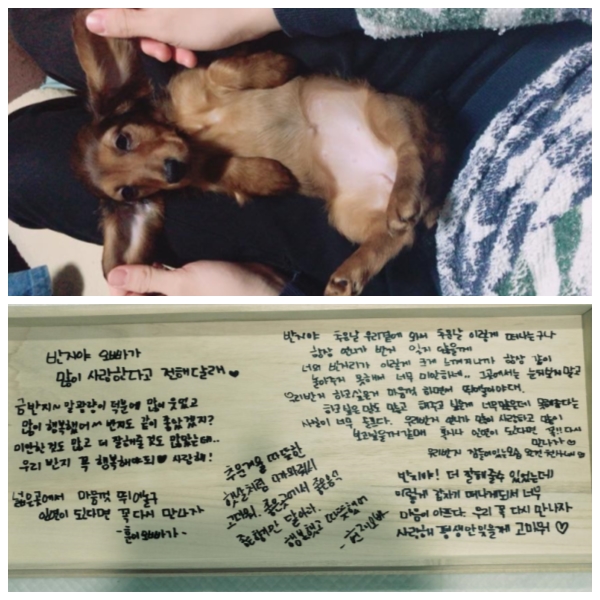 반지야 오빠가
많이 사랑한다고 전해달래 ♥
금반지~ 말괄량이 덕분에 많이 웃었고
많이 행복했어~ 반지도 같이 좋았겠지?
미안한것도 많고 더 잘해줄것도 많았는데..
우리 반지 꼭 행복해야되 ♥ 사랑해!
넓은곳에서 마음껏 뛰어놀구
인연이 된다면 꼭 다시 만나자
-훈이오빠가-
추운겨울 따뜻한
햇살처럼 다가와줘서
고마워. 좋은곳에서 좋은생각
좋은것만 담아라.
행복했고 따뜻했어
반지야 추운날 우리곁에 와서 추운날 이렇게 떠나는구나
항상 언니가 반지 잊지 않을게
너의 빈자리가 이렇게 크게 느껴지니까 항상 같이
놀아주지 못해서 너무 미안하네.. 그곳에서는 눈치보지말고
우리반지 하고싶은거 마음껏 하면서 뛰어놀아야대.
하고싶은 말도 많고 해주고 싶은게 너무많은데 못해준다는
사실이 너무 슬프다. 우리반지 언니가 많이 사랑하고 많이
보고싶을거같애 혹시나 인연이 된다면 꼭 또 다시
만나자 ♡
반지야! 더 잘해줄수 있었는데
이렇게 갑자기 떠나게되서 너무
마음이 아프다. 우리 꼭 다시 만나자
사랑해 평생 안잊을게 고마워 ♡